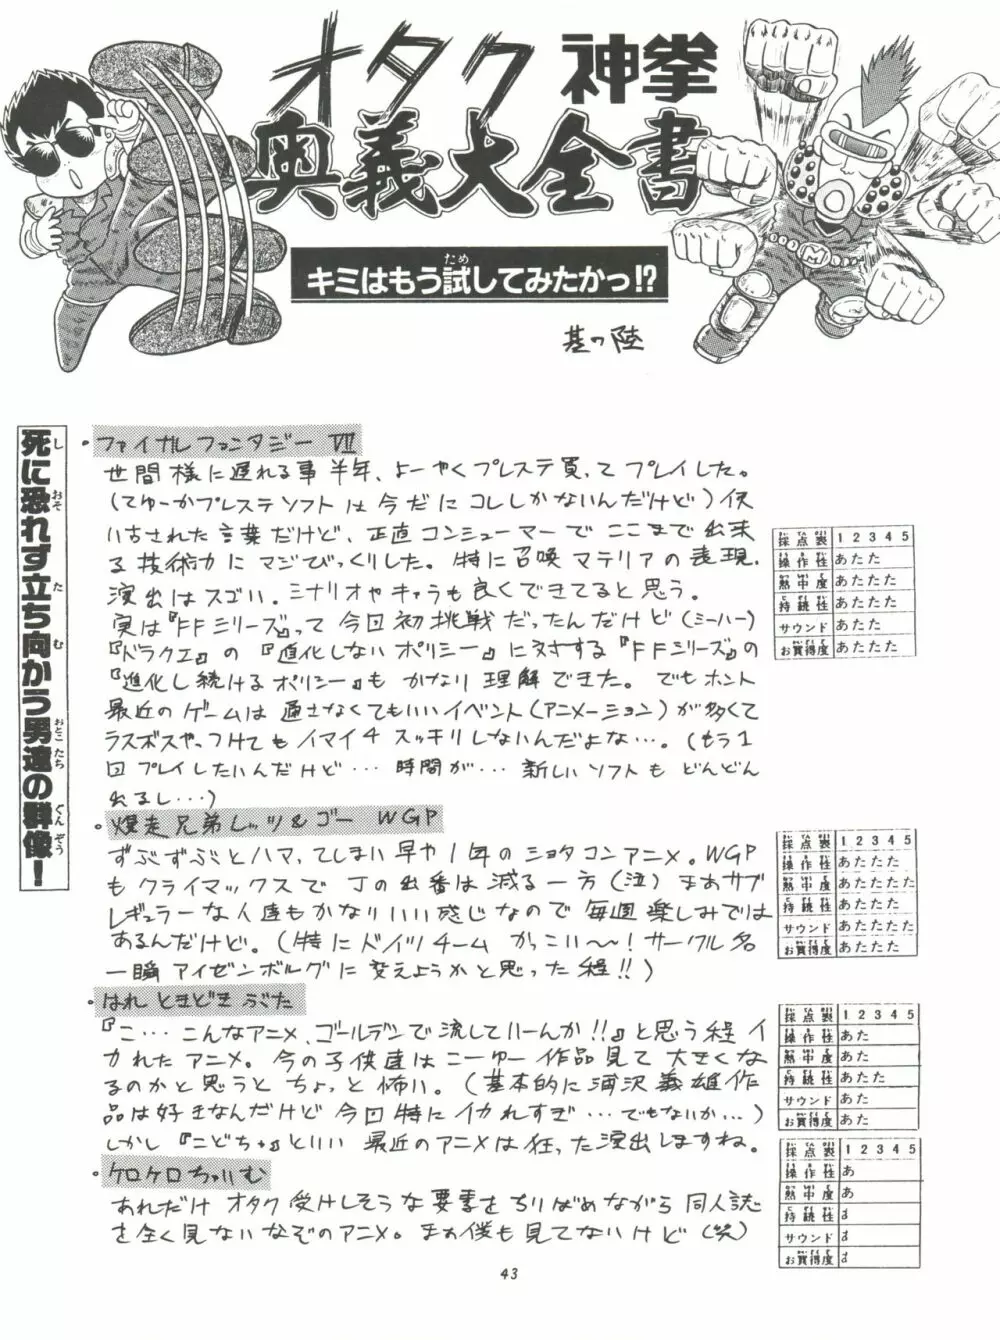 オタク神拳
奥義大全書
キミはもう試してみたかっ!?
ため
其の陸
死に恐れず立ち向かう男達の群像!
し おそ た む おとこ たち ぐん ぞう
・ファイナルファンタジー Ⅶ
世間様に遅れる事半年、よーやくプレステ買ってプレイした。
(てゆーかプレステソフトは今だにコレしかないんだけど)使
い古された言葉だけど、正直コンシューマーでここまで出来
る技術力にマジびっくりした。特に召喚マテリアの表現、
演出はスゴい。シナリオやキャラも良くできてると思う。
実は『FFシリーズ』って今回初挑戦だったんだけど(ミーハー)
『ドラクエ』の『進化しないポリシー』に対する『FFシリーズ』の
『進化し続けるポリシー』もかなり理解できた。でもホント
最近のゲームは通さなくてもいいイベント(アニメーション)が多くて
ラスボスやっつけてもイマイチスッキリしないんだよな…。(もう1
回プレイしたいんだけど…時間が…新しいソフトもどんどん
出るし…)
採点表 1 2 3 4 5
操作性 あたた
熱中度 あたたた
持続性 あたたた
サウンド あたた
お買得度 あたたた
・爆走兄弟レッツ&ゴー WGP
ずぶずぶとハマってしまい早や1年のショタコンアニメ。WGP
もクライマックスでJの出番は減る一方(泣)まあサブ
レギュラーな人達もかなりいい感じなので毎週楽しみでは
あるんだけど。(特にドイツチームかっこい〜!サークル名
一瞬アイゼンボルグに変えようかと思った程!!)
採点表 1 2 3 4 5
操作性 あたたた
熱中度 あたたたた
持続性 あたたた
サウンド あたたたた
お買得度 あたたた
・はれときどきぶた
『こ…こんなアニメ、ゴールデンで流していーんか!!』と思う程イ
カれたアニメ。今の子供達はこーゆー作品見て大きくな
るのかと思うとちょっと怖い。(基本的に浦沢義雄作
品は好きなんだけど今回特にイカれすぎ…でもないか…)
しかし『こどちゃ』といい最近のアニメは狂った演出しますね。
採点表 1 2 3 4 5
操作性 あた
熱中度 あた
持続性 あたた
サウンド あた
お買得度 あた
・ケロケロちゃいむ
あれだけオタク受けしそうな要素をちりばめながら同人誌
を全く見ないなぞのアニメ。まあ僕も見てないけど(笑)
採点表 1 2 3 4 5
操作性 あ
熱中度 あ
持続性
サウンド
お買得度
M
43